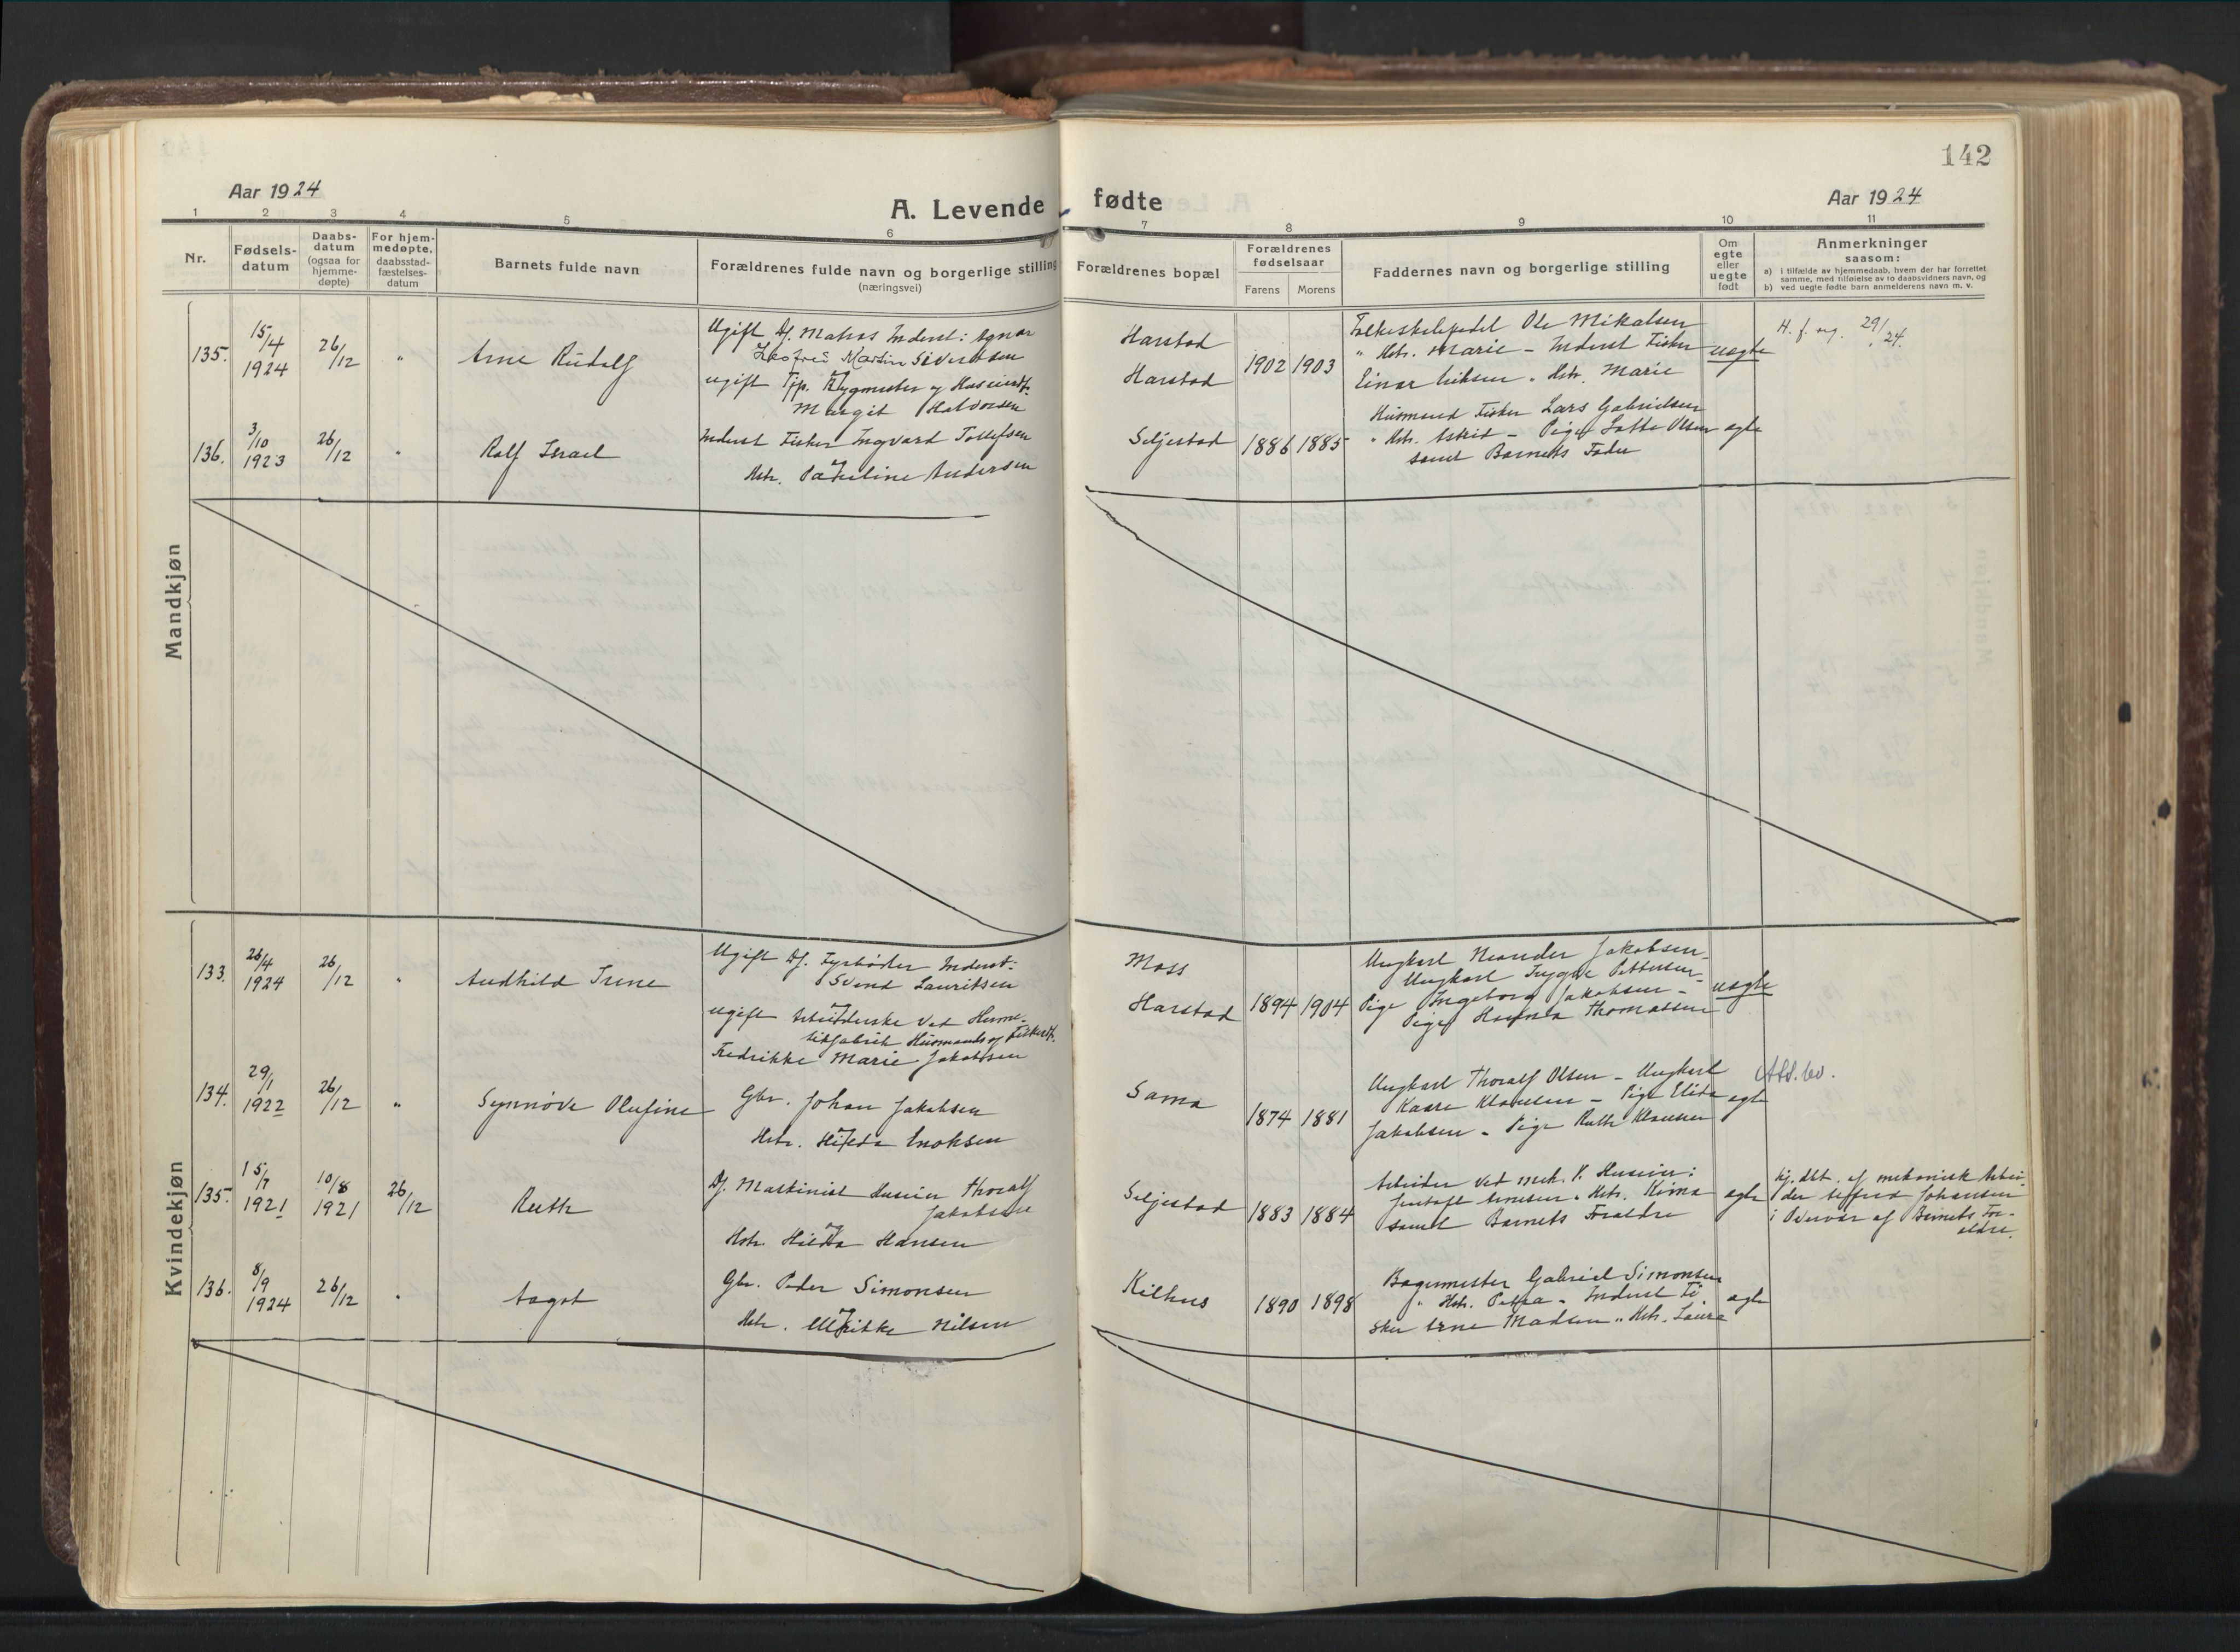 142
Aar 1924
A. Levende fødte
Aar 1924
1 2 3 4 5 6 7 8 9 10 11
Nr.
Fødsels-
datum
Daabs-
datum
(ogsaa for
hjemme-
døpte)
For hjem-
medøpte,
daabsstad-
fæstelses-
datum
Barnets fulde navn
Forældrenes fulde navn og borgerlige stilling
(næringsvei)
Forældrenes bopæl
Forældrenes
fødselsaar
Farens Morens
Faddernes navn og borgerlige stilling
Om
egte
eller
uegte
født
Anmerkninger
saasom:
a) i tilfælde av hjemmedaab, hvem der har forrettet
samme, med tilføielse av to daabsvidners navn, og
b) ved uegte fødte barn anmelderens navn m. v.
Mandkjøn
135. 15/4 1924 26/12 " Arne Rudolf
Ugift Df. Matros Inderst: Agnar
Martin Sivertsen
ugift Tjp. Bygmester og Huseierdt.
Margit Halvorsen
Harstad
Harstad
1902 1903
Ole Mikalsen
" Hstr. Marie - Inderst Fisker
Einar Eriksen " Hstr. Marie
uegte
29/ 24.
136. 3/10 1923 26/12 " Rolf Israel
Inderst Fisker Ingvard Tollefsen
Hstr. Andersen
Seljestad
1886 1885
Husmand Fisker Lars Gabrielsen
" Hstr. Astrid - Pige Lotte Olsen
samt Barnets Fader
egte
Kvindekjøn
133. 26/4 1924 26/12 " Audhild Irene
Ugift Df. Fyrbøder Inderst:
Svend Lauritsen
ugift Arbeiderske ved Herme-
tikfabrik Husmands og Fiskerdt.
Fredrikke Marie Jakobsen
Moss
Harstad
1894 1904
Ungkarl Neander Jakobsen -
Ungkarl Trygve Pettersen -
Pige Ingeborg Jakobsen -
Pige Hanna Thomassen
uegte
134. 29/1 1922 26/12 " Synnøve Olufine
Gbr. Johan Jakobsen
Hstr. Hilda Enoksen
Sama
1874 1881
Ungkarl Thoralf Olsen - Ungkarl
Kaare Klausen - Pige Elida
Jakobsen - Pige Ruth Klausen
egte
135. 15/7 1921 10/8 1921 26/12 Ruth
Df. Maskinist Huseier Thoralf
Jakobsen
Hstr. Hilda Hansen
Seljestad
1883 1884
Arbeider ved mek. V. Huseier:
Jentoft Arnesen " Hstr.
samt Barnets Forældre
egte
hj. dbt. af mekanisk Arbei-
der Johansen
i Overvær af Barnets For-
ældre.
136. 8/9 1924 26/12 " Aagot
Gbr. Peder Simonsen
Hstr. Ulrikke Nilsen
Kilhus
1890 1898
Bagermester Gabriel Simonsen
" Hstr. Petra - Inderst Fi
sker Arne Madsen " Hstr. Laura
egte